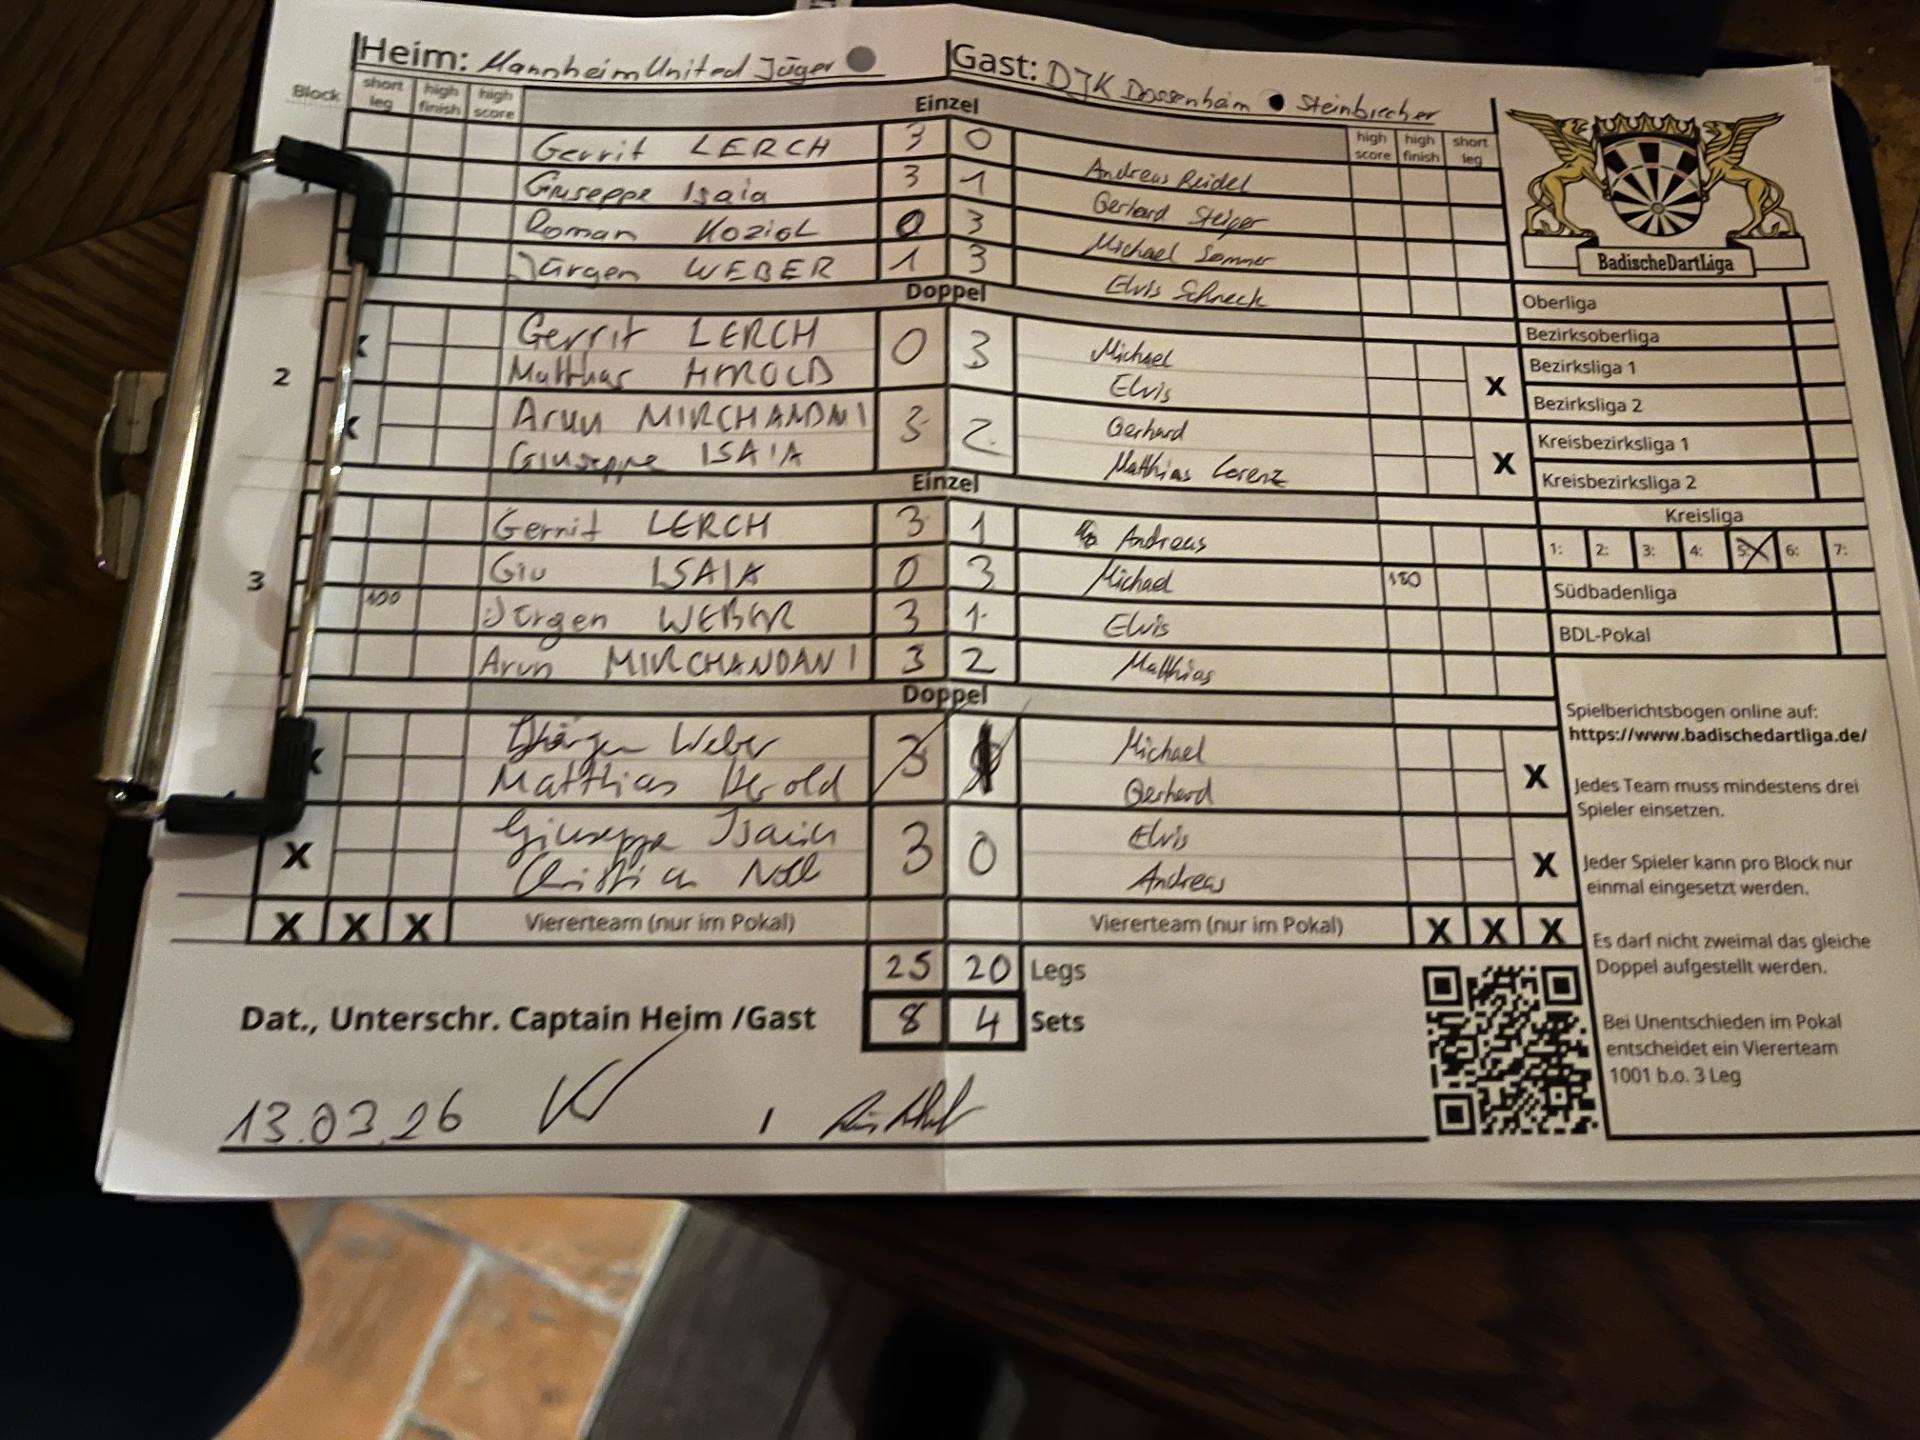 Heim: Mannheim United Jäger
Gast: DJK Dossenheim Steinbrecher
Block short leg high finish high score
Einzel
high score high finish short leg
Gerrit LERCH 3 0 Andreas Reidel
Giuseppe Isaia 3 1 Gerhard Steiger
Roman KOZIOL 0 3 Michael Sommer
Jürgen WEBER 1 3 Elvis Schneck
Doppel
2
Gerrit LERCH 0 3 Michael X
Matthias HEROLD Elvis
Arun MIRCHANDANI 3 2 Gerhard X
Giuseppe ISAIA Matthias Lorenz
Einzel
3
Gerrit LERCH 3 1 Andreas
Giu ISAIA 0 3 Michael 180
100 Jürgen WEBER 3 1 Elvis
Arun MIRCHANDANI 3 2 Matthias
Doppel
Jürgen Weber 3 Michael X
Matthias Herold Gerhard
X Giuseppe Isaia 3 0 Elvis X
Christian Noll Andreas
X X X Viererteam (nur im Pokal) Viererteam (nur im Pokal) X X X
25 20 Legs
Dat., Unterschr. Captain Heim /Gast 8 4 Sets
13.03.26
BadischeDartLiga
Oberliga
Bezirksoberliga
Bezirksliga 1
Bezirksliga 2
Kreisbezirksliga 1
Kreisbezirksliga 2
Kreisliga
1: 2: 3: 4: 5: X 6: 7:
Südbadenliga
BDL-Pokal
Spielberichtsbogen online auf:
https://www.badischedartliga.de/
Jedes Team muss mindestens drei
Spieler einsetzen.
Jeder Spieler kann pro Block nur
einmal eingesetzt werden.
Es darf nicht zweimal das gleiche
Doppel aufgestellt werden.
Bei Unentschieden im Pokal
entscheidet ein Viererteam
1001 b.o. 3 Leg